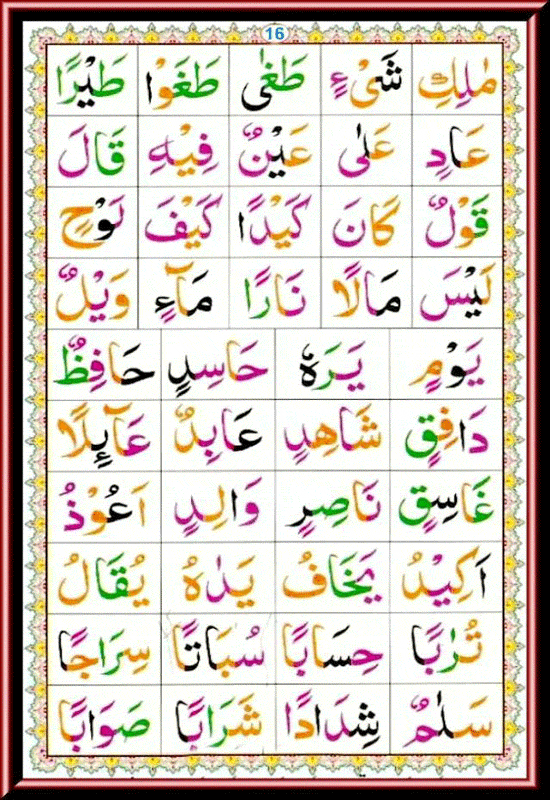 16
مٰلِكِ شَیْءٍ طَغٰی طَغَوْا طَیْرًا
عَادِ عَلٰی عَیْنٌ فِیْهِ قَالَ
قَوْلٌ كَانَ كَیْدًا كَیْفَ لَوْحٍ
لَیْسَ مَالًا نَارًا مَآءٍ وَیْلٌ
یَوْمٍ یَرَهٗ حَاسِدٍ حَافِظٌ
دَافِقٍ شَاهِدٍ عَابِدٌ عَآئِلًا
غَاسِقٍ نَاصِرٍ وَالِدٍ اَعُوْذُ
اَكِیْدُ یَخَافُ یَدٰهُ یُقَالُ
تُرٰبًا حِسَابًا سُبَاتًا سِرَاجًا
سَلٰمٌ شِدَادًا شَرَابًا صَوَابًا